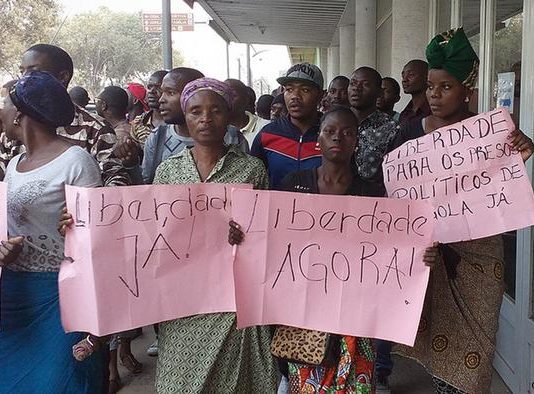 Liberdade
JÁ!
Liberdade
AGORA!
LIBERDADE
PARA OS PRESOS
POLÍTICOS DE
OLA JÁ